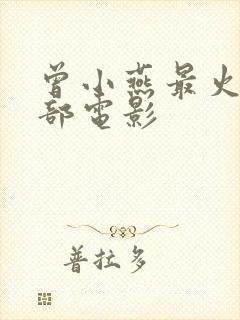 曾小燕最火
部電影
普拉多